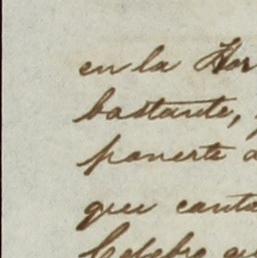 en la Hor
bastante,
ponerte a
que canta